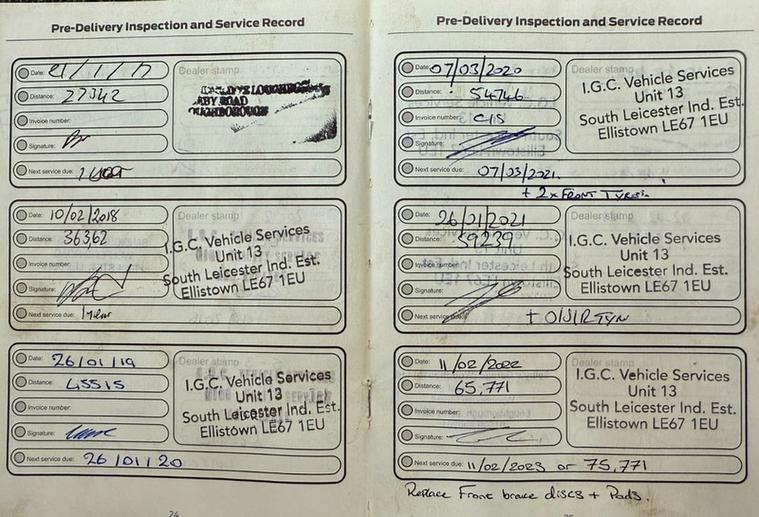 Pre-Delivery Inspection and Service Record
Date: 21/1/17
Distance: 27342
Invoice number:
Signature:
Next service due: 1 year
Dealer stamp
LOUGHBOROUGH
ROAD
LOUGHBOROUGH
Date: 10/02/2018
Distance: 36362
Invoice number:
Signature:
Next service due: 1 year
Dealer stamp
I.G.C. Vehicle Services
Unit 13
South Leicester Ind. Est.
Ellistown LE67 1EU
Date: 26/01/19
Distance: 45515
Invoice number:
Signature:
Next service due: 26/01/20
Dealer stamp
I.G.C. Vehicle Services
Unit 13
South Leicester Ind. Est.
Ellistown LE67 1EU
24
Pre-Delivery Inspection and Service Record
Date: 07/03/2020
Distance: 54746
Invoice number: CIS
Signature:
Next service due: 07/03/2021.
Dealer stamp
I.G.C. Vehicle Services
Unit 13
South Leicester Ind. Est.
Ellistown LE67 1EU
+ 2x FRONT TYRES
Date: 26/01/2021
Distance: 59239
Invoice number:
Signature:
Next service due:
Dealer stamp
I.G.C. Vehicle Services
Unit 13
South Leicester Ind. Est.
Ellistown LE67 1EU
Date: 11/02/2022
Distance: 65,771
Invoice number:
Signature:
Next service due: 11/02/2023 or 75,771
Dealer stamp
I.G.C. Vehicle Services
Unit 13
South Leicester Ind. Est.
Ellistown LE67 1EU
Replace Front brake discs + Pads.
25